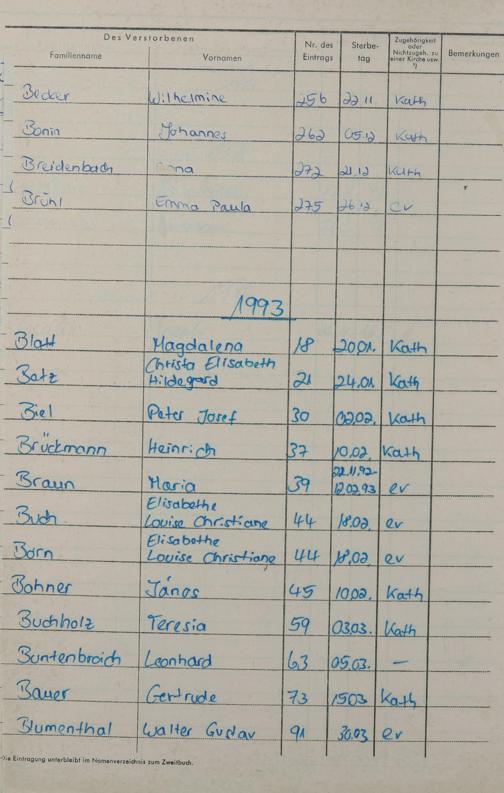 Des Verstorbenen
Familienname Vornamen Nr. des Eintrags Sterbe-tag Zugehörigkeit oder Nichtzugeh. zu einer Kirche usw. *) Bemerkungen
Becker Wilhelmine 256 22.11. Kath
Bonin Johannes 262 05.12 Kath
Breidenbach nna 272 21.12 Kath
Brühl Emma Paula 275 26.12 ev
1993
Blatt Magdalena 18 20.01. Kath
Christa Elisabeth
Betz Hildegard 21 24.01. Kath
Biel Peter Josef 30 02.02. Kath
Brückmann Heinrich 37 10.02. Kath
22.11.92-
Braun Maria 39 12.02.93 ev
Elisabethe
Buch Louise Christiane 44 18.02. ev
Elisabethe
Born Louise Christiane 44 18.02. ev
Bohner János 45 10.02. Kath
Buchholz Teresia 59 03.03. Kath
Buntenbroich Leonhard 63 05.03. —
Bauer Gertrude 73 15.03 Kath
Blumenthal Walter Gustav 91 30.03 ev
*) Die Eintragung unterbleibt im Namenverzeichnis zum Zweitbuch.